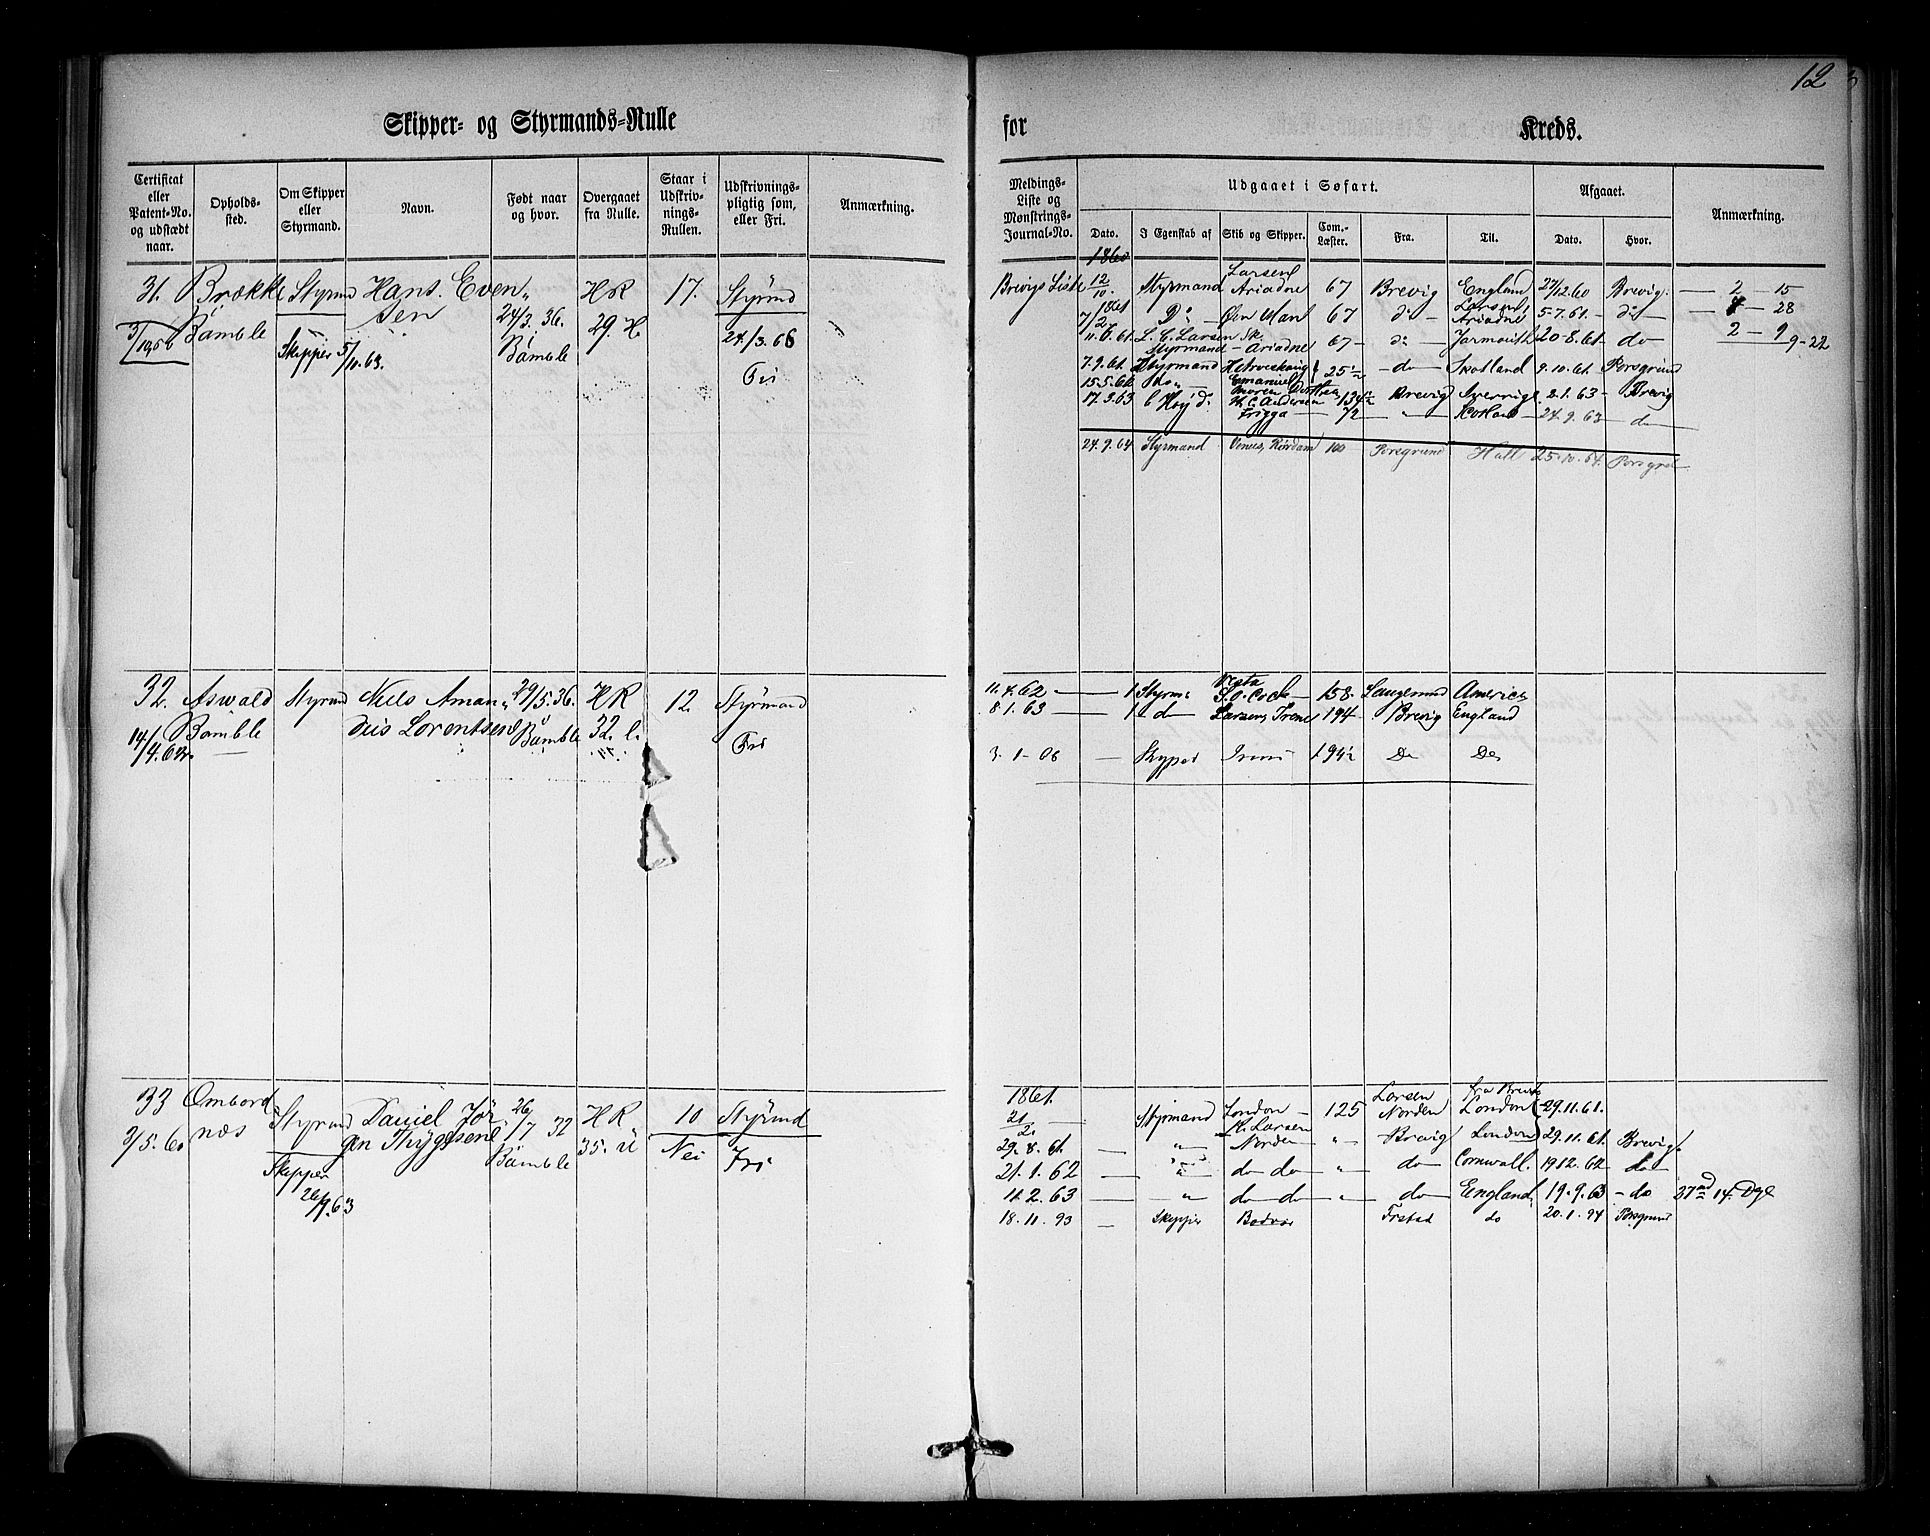 12
Skipper- og Styrmands-Rulle for Kreds.
Certificat eller Patent-No. og udstædt naar.
Opholds-sted.
Om Skipper eller Styrmand.
Navn.
Født naar og hvor.
Overgaaet fra Rulle.
Staar i Udskriv-nings-Rullen.
Udskrivnings-pligtig som, eller Fri.
Anmærkning.
Meldings-Liste og Mønstrings-Journal-No.
Udgaaet i Søfart.
Dato.
I Egenskab af
Skib og Skipper.
Com.-Læster.
Fra.
Til.
Afgaaet.
Dato.
Hvor.
Anmærkning.
31. Brække Styrmd Hans. Even„ 24/3. 36. HR 17. Styrmd
Bamble sen Bamble 29. H. 24/3. 66
Skipper 5/10.63. Fri
1860
Brevigs Liste 12/10. Styrmand Larsen Ariadne 67 Brevig England 27/12.60 Brevig. — 2 — 15
1861
7/2 D° 67 do Larsen, Ariadne 5-7.61. do — 28
11.6.61. L. C. Larsen Sk. Styrmand — Ariadne 67 — do — Jarmouth 20-8.61. do 2 — 9 9-22
7.9.61. Styrmand 25 — do — Skotland 9.10.61. Porsgrund
15.5.62 do Emanuel
17.3.63 H. C. Andersen Brevig Sverrig 2.1.63 — Brevig
Frigga — 72 — „ 24.9.63 — do
24.9.64 Styrmand Venus, Rørdam 100 Porsgrund Hull 25.10.64. Porsgrd
32. Aswald Styrmd Niels Aman„ 29/5.36. HR 12. Styrmand
14/4.62. Bamble dus Lorentsen Bamble 32. l. Fri
11.4.62 — 1 Styrm. Vesta S. O. Cock — 158. Langesund America
8.1.63 — 1 do Larsen, Irene 194 Brevig England
3.1-06 — 194½ Do Do
33 Ombord Styrmd Daniel Jør 26/7 32 HR 10 Styrmd
3/5.60 næs gen Thygesen Bamble 35. u Nei Fri
Skipper 26/9.63
1861.
21/2. — Styrmand London — 125 Larsen Norden London 29.11.61.
29.8.61. — „ K. Larsen Norden „ Brevig London 29.11.61. Brevig
21.1.62 — „ do do „ do Cornwall. 19 12.62 do
11.2.63 — „ do do — „ — do England 19.9.63 — do 37 md 14. Dge
18.11.93 — Skipper Frstad do 20.1.94 Porsgrund